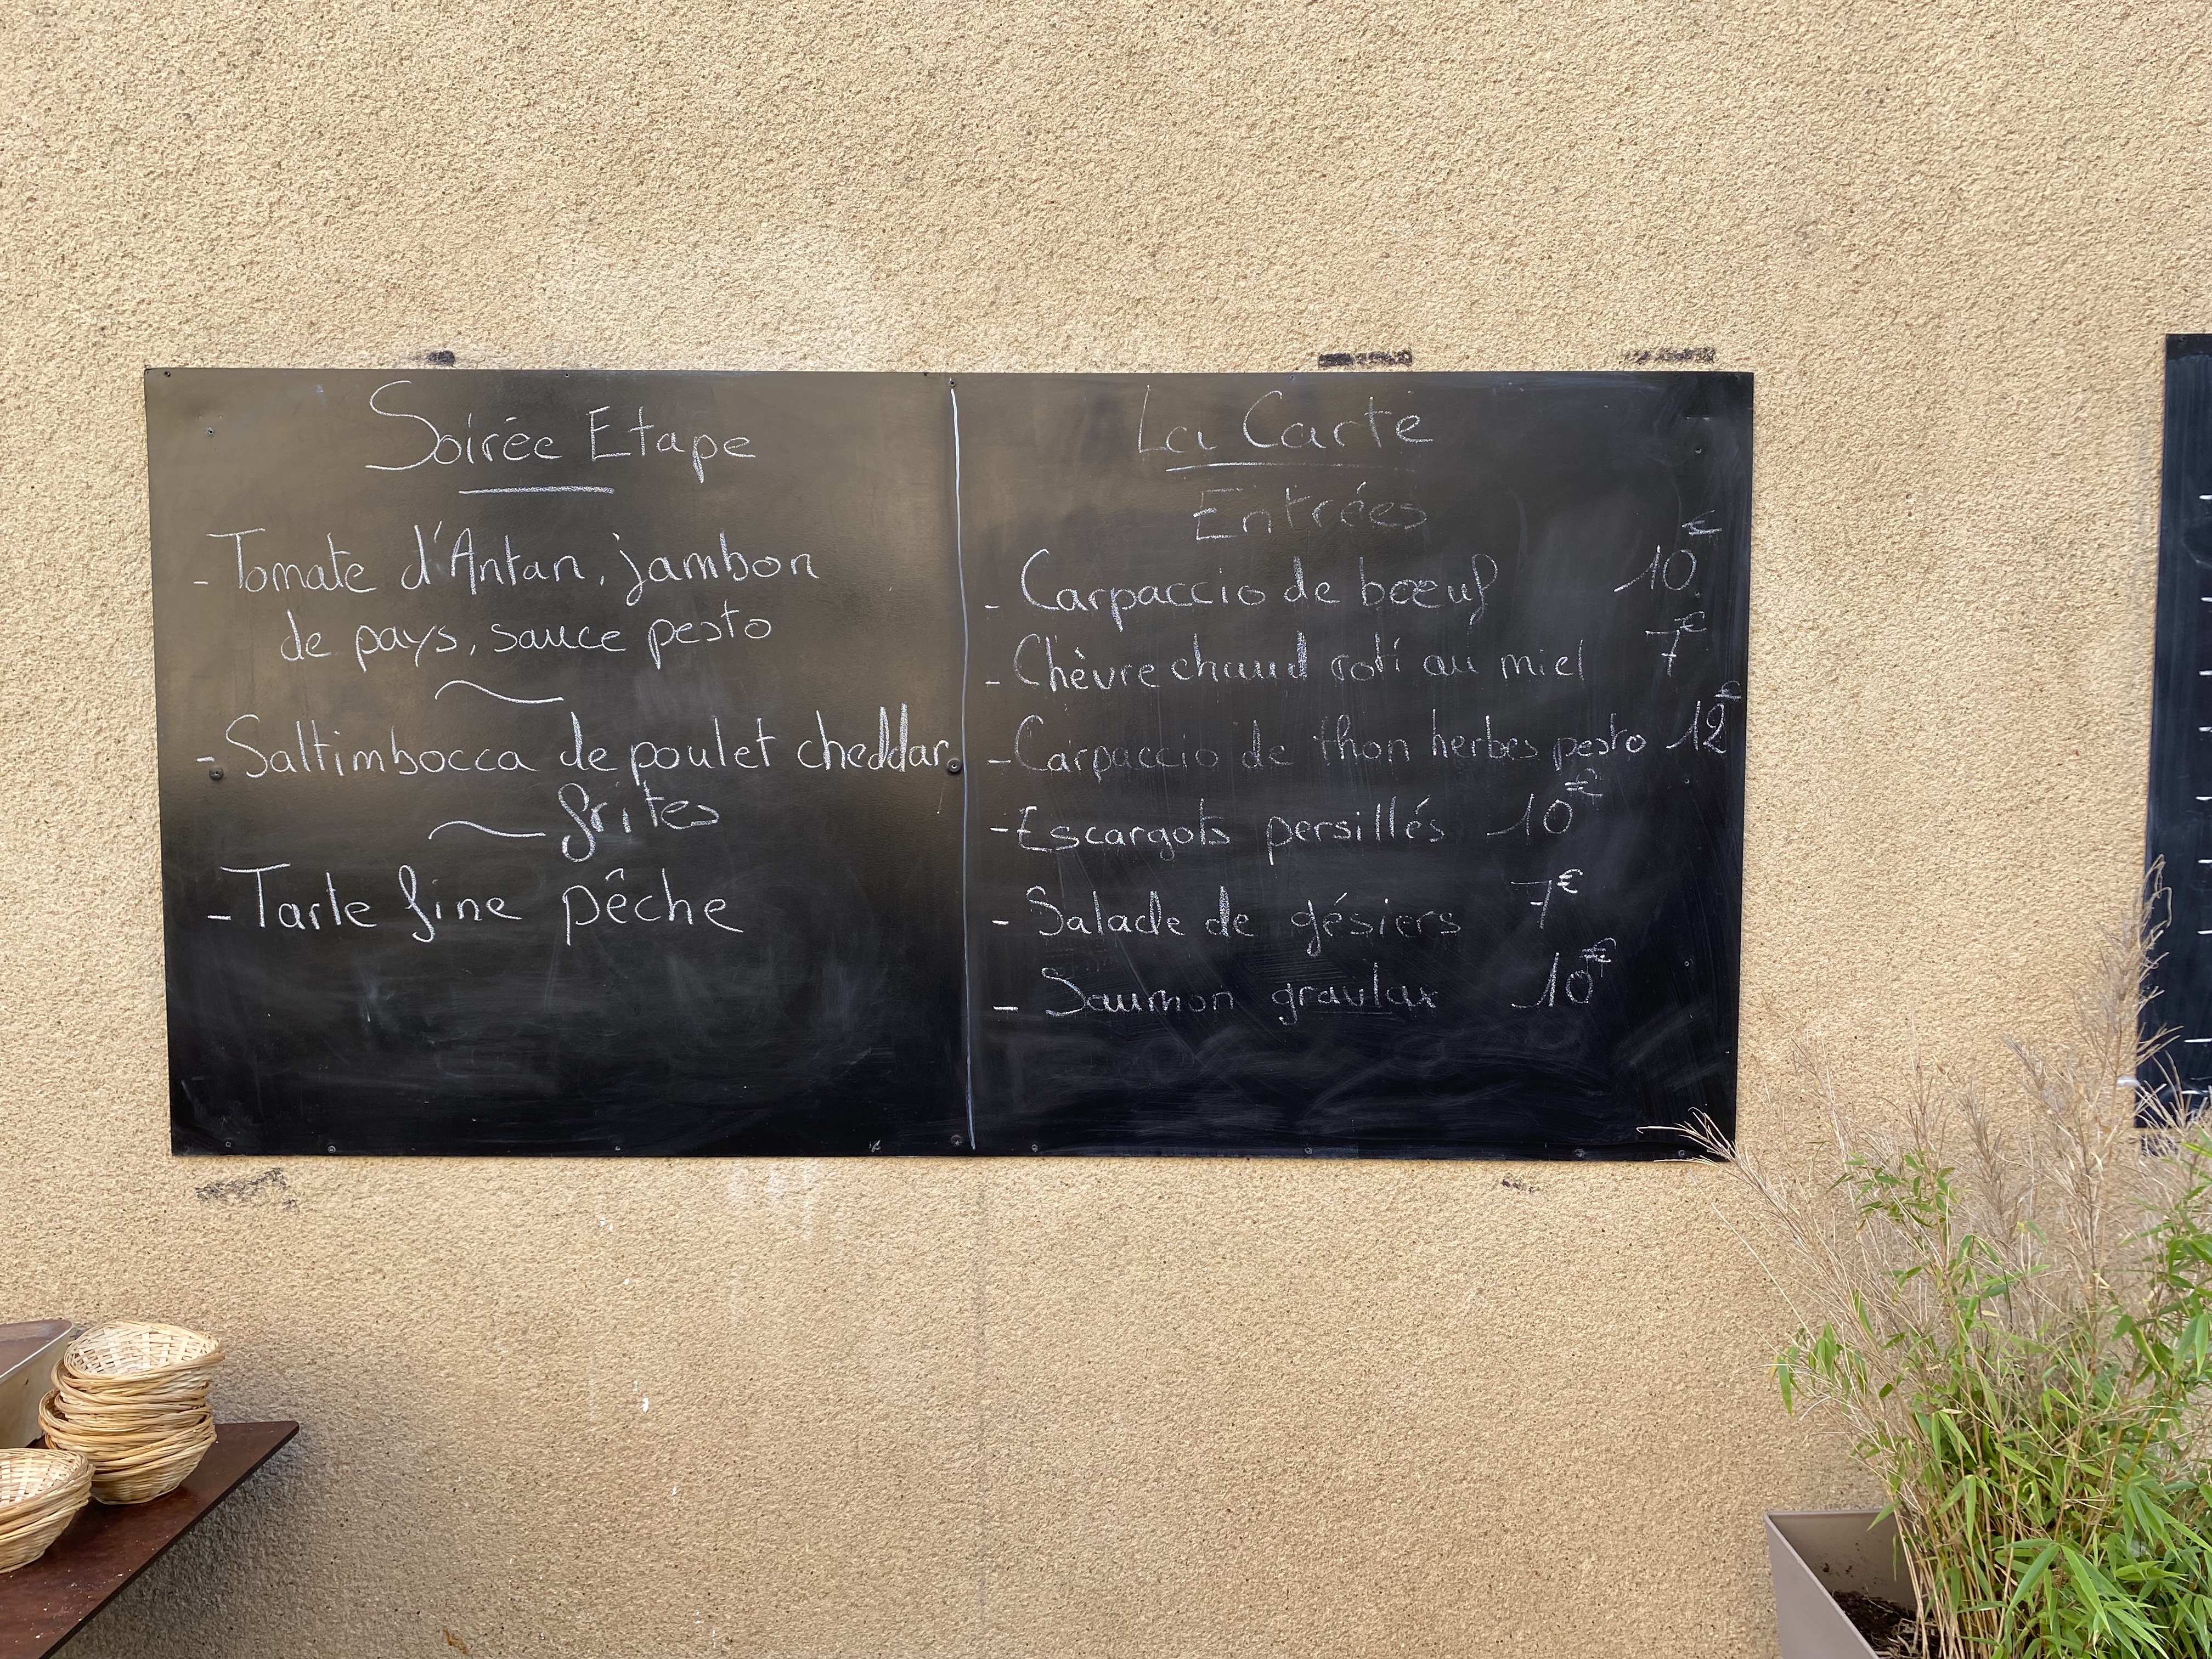 Soirée Etape
- Tomate d'Antan, jambon
de pays, sauce pesto
- Saltimbocca de poulet cheddar
frites
- Tarte fine pêche
La Carte
Entrées
- Carpaccio de bœuf 10€
- Chèvre chaud roti au miel 7€
- Carpaccio de thon herbes pesto 12€
- Escargots persillés 10€
- Salade de gésiers 7€
- Saumon gravlax 10€